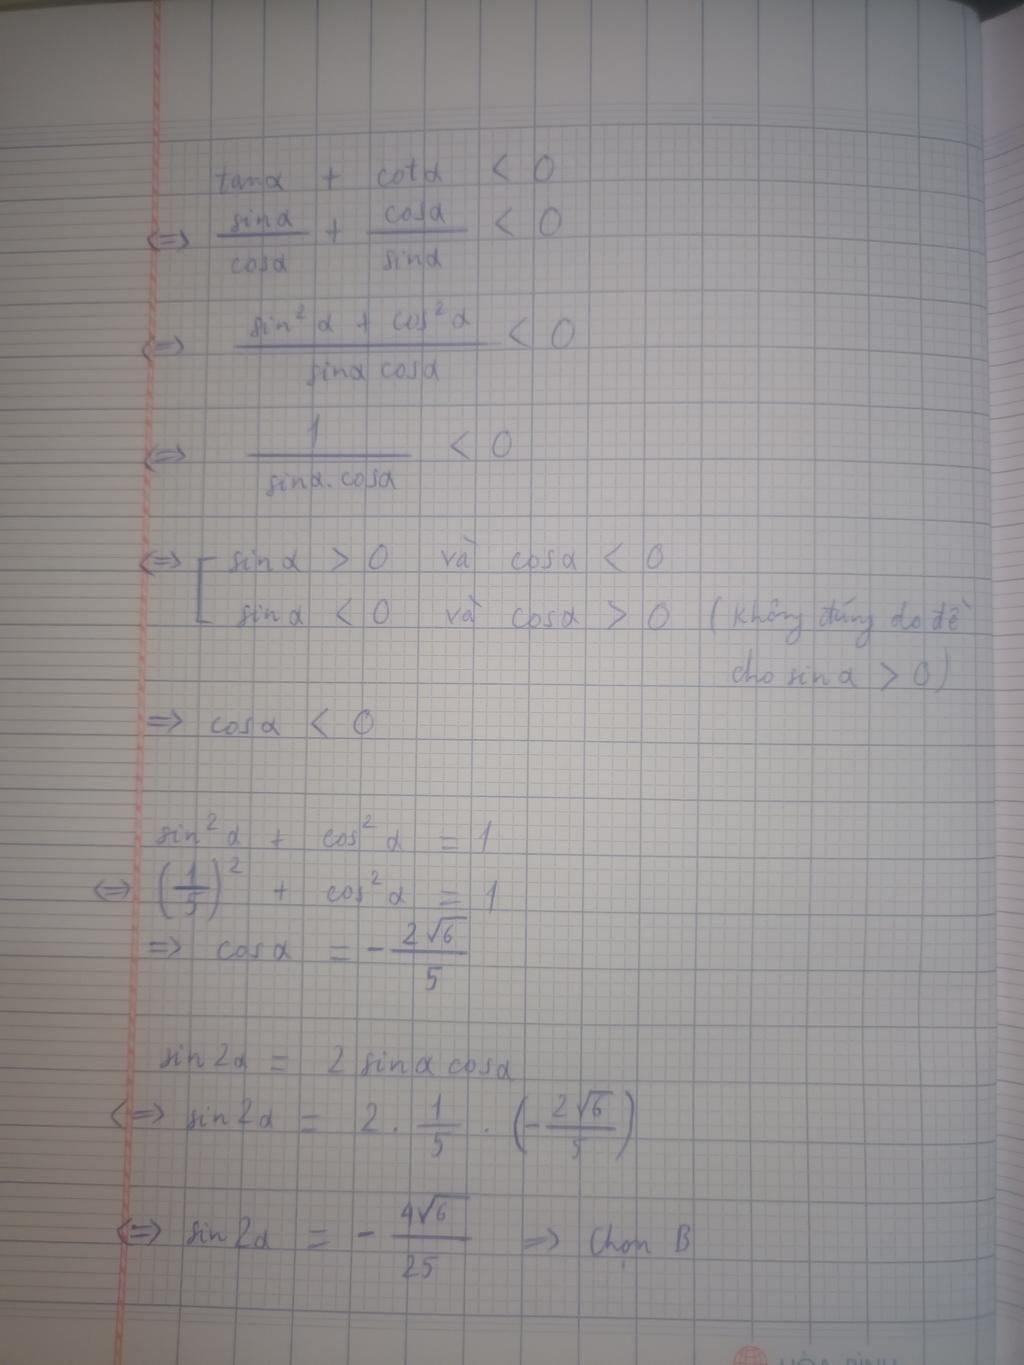 tanα + cotα < 0
<=> sinα/cosα + cosα/sinα < 0
<=> (sin²α + cos²α)/(sinα cosα) < 0
<=> 1/(sinα.cosα) < 0
<=> [ sinα > 0 và cosα < 0
sinα < 0 và cosα > 0 (không đúng do đề
cho sinα > 0)
=> cosα < 0
sin²α + cos²α = 1
<=> (1/5)² + cos²α = 1
=> cosα = -2√6/5
sin2α = 2 sinα cosα
<=> sin2α = 2 . 1/5 . (-2√6/5)
<=> sin2α = -4√6/25 => Chọn B